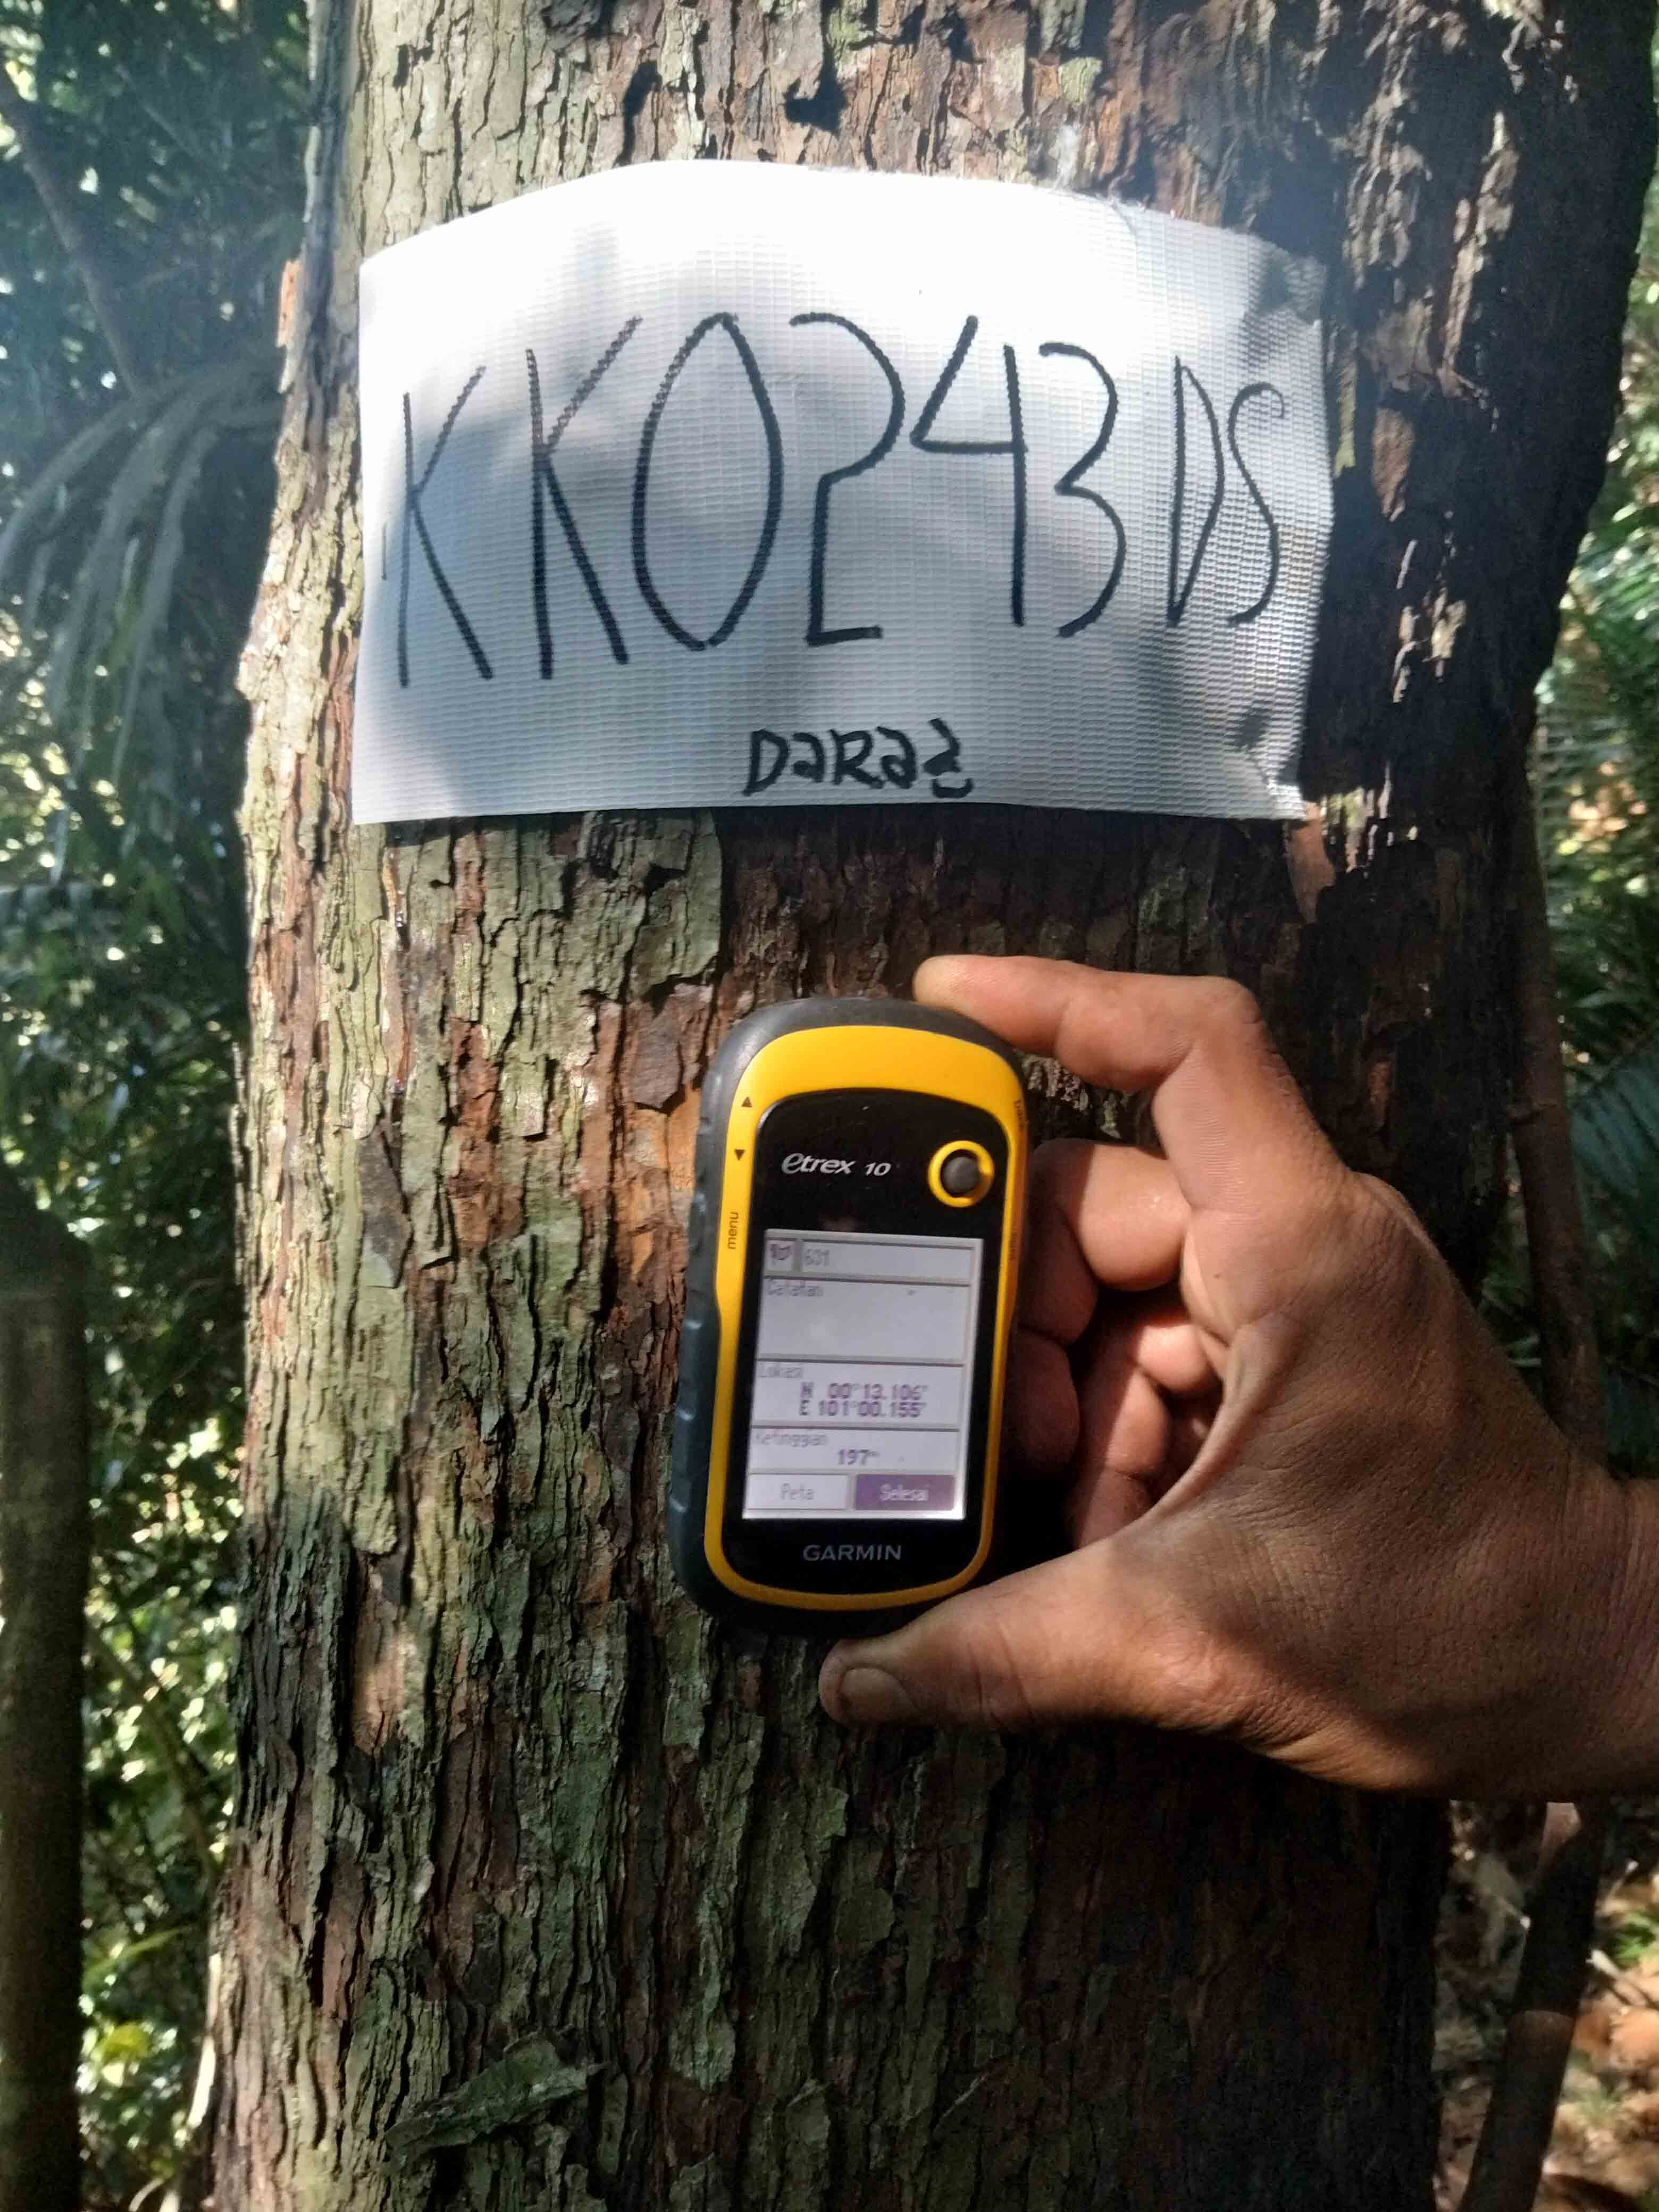 KK0243DS
etrex 10
menu
631
Catatan
Lokasi
N 00°13.106'
E 101°00.155'
Ketinggian
197m
Peta Selesai
GARMIN